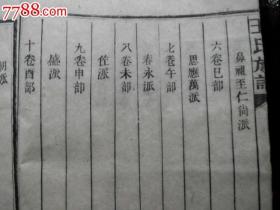 7788.com
王氏族譜
鼻祖至仁尚派
六卷巳部
恩應萬派
七卷午部
春永派
八卷未部
佐派
九卷申部
盛派
十卷酉部
朝派